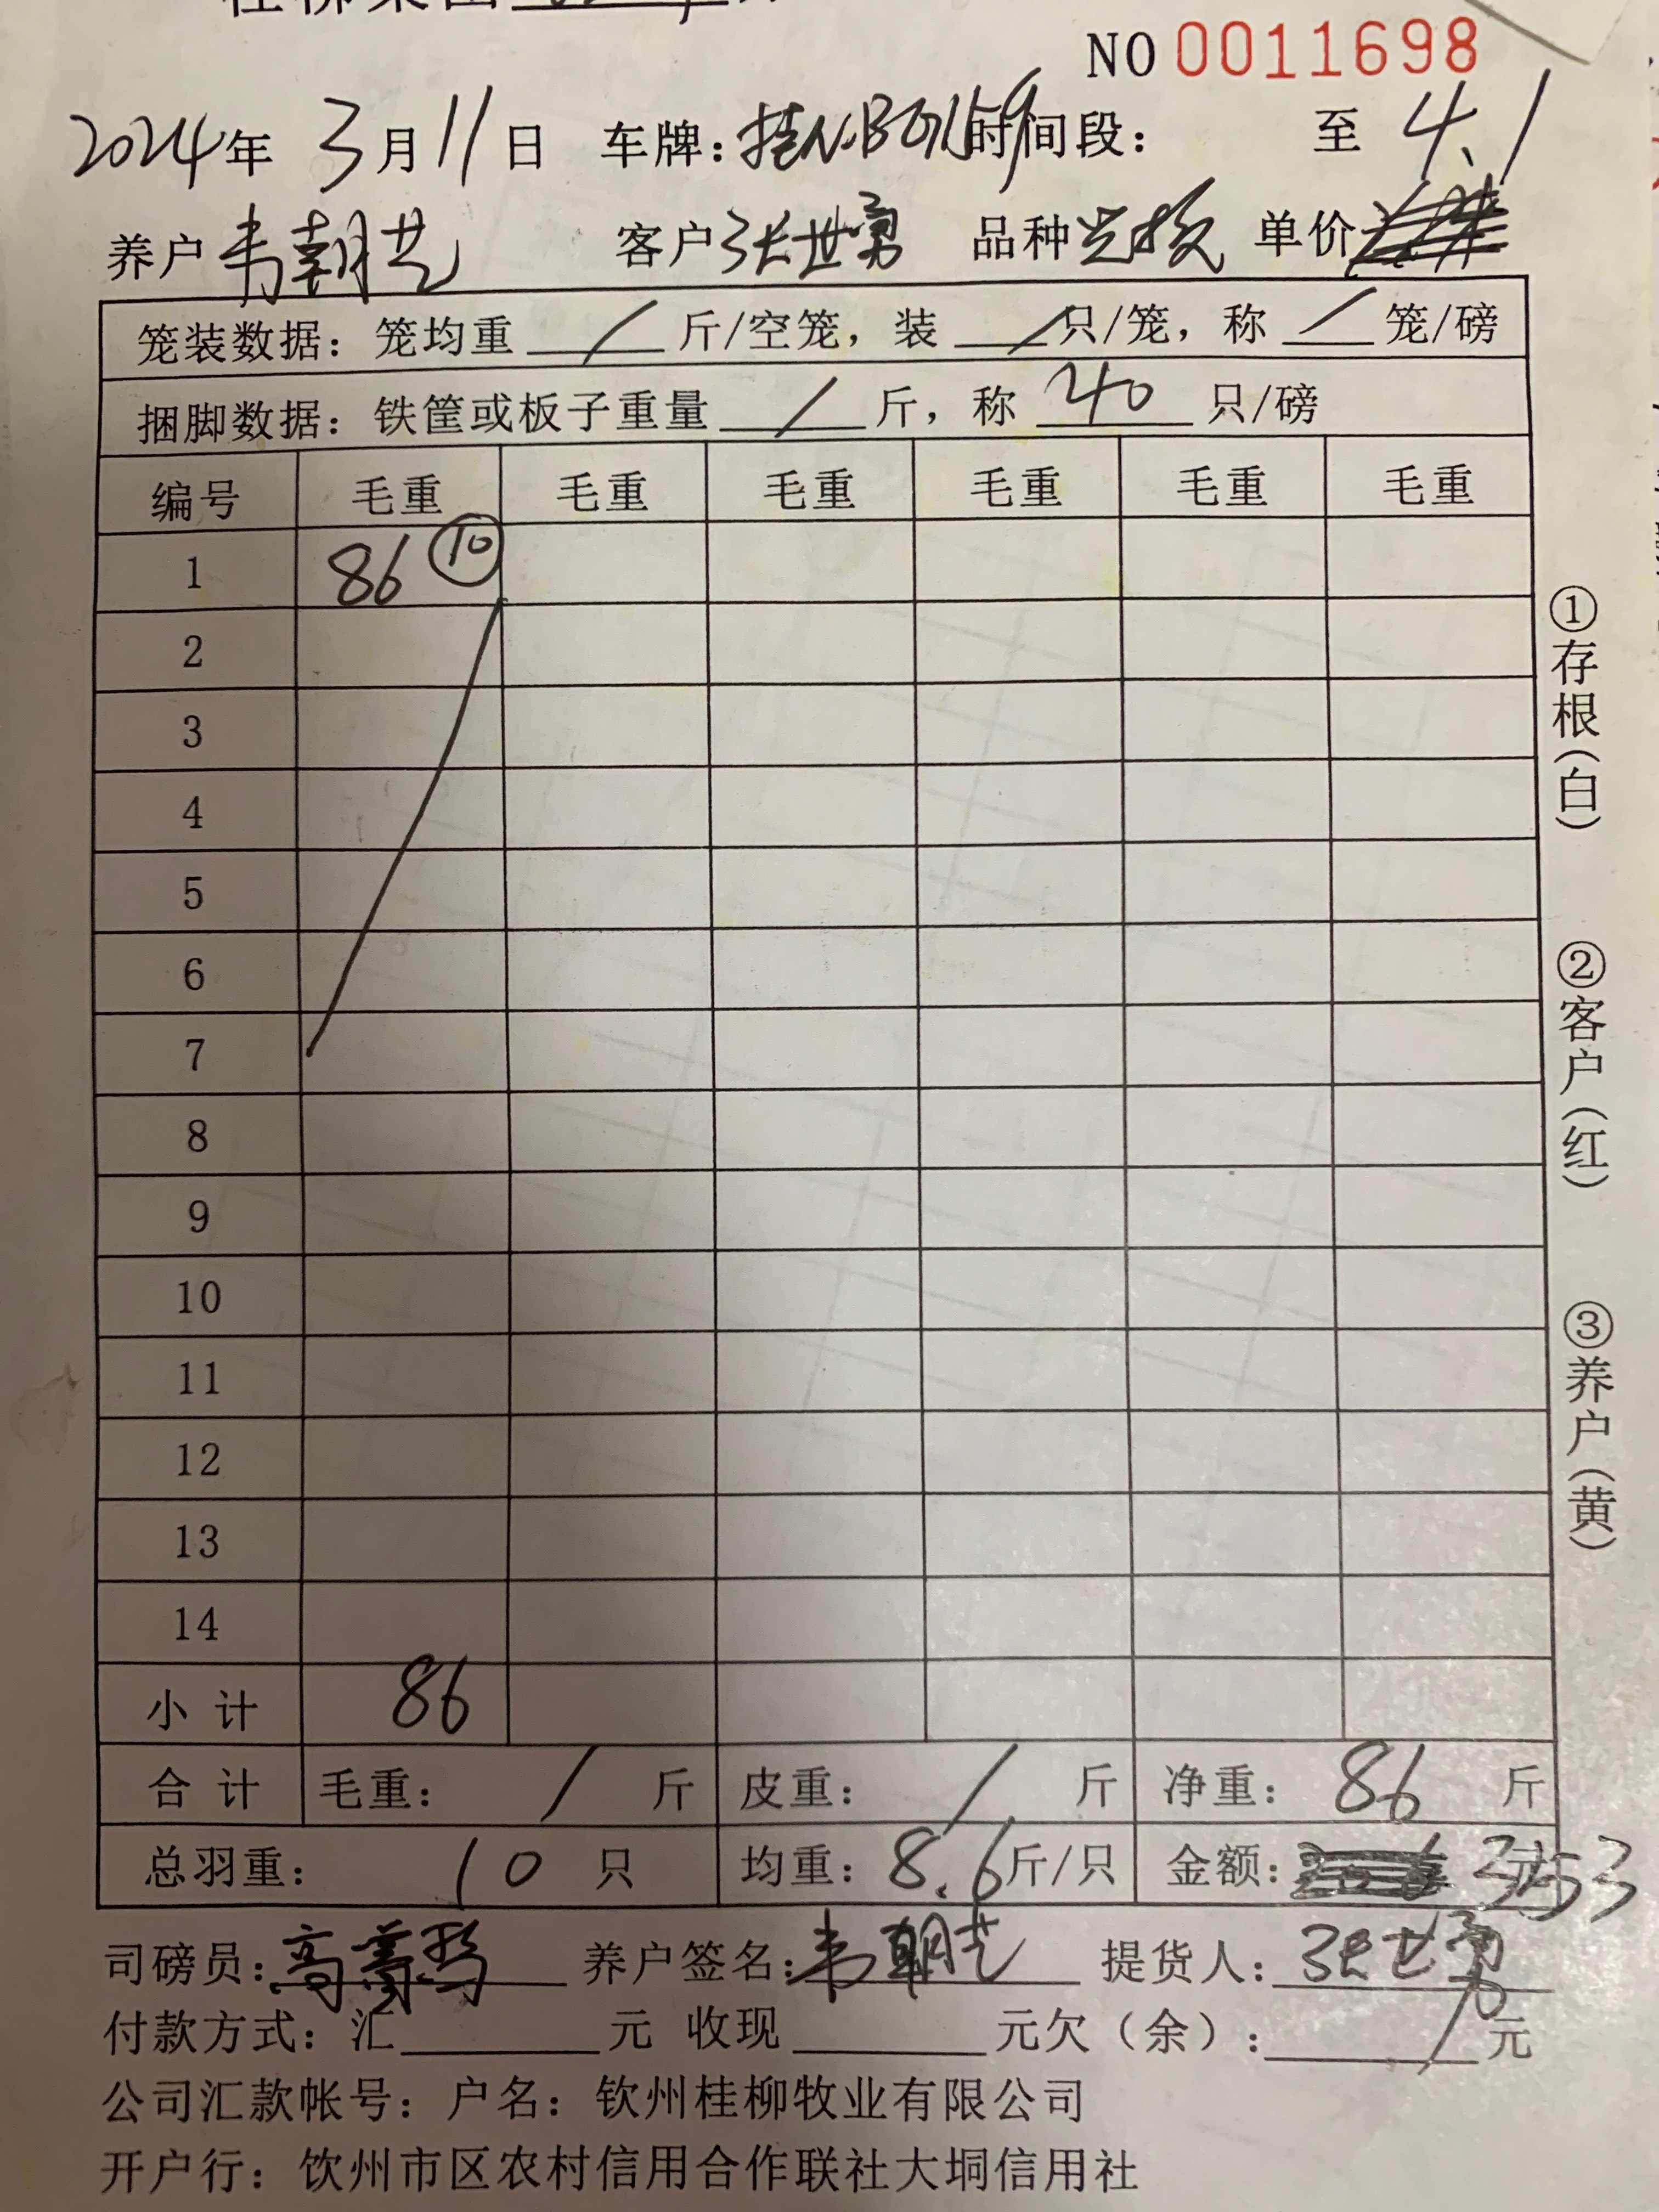 NO 0011698
2024年 3月11日 车牌:桂N.B 时间段: 至 4.1
养户 韦朝艺 客户 张世勇 品种 单价
笼装数据: 笼均重 / 斤/空笼, 装 / 只/笼, 称 / 笼/磅
捆脚数据: 铁筐或板子重量 / 斤, 称 40 只/磅
编号 毛重 毛重 毛重 毛重 毛重 毛重
1 86 ⑩
2
3
4
5
6
7
8
9
10
11
12
13
14
小计 86
合计 毛重: / 斤 皮重: / 斤 净重: 86 斤
总羽重: 10 只 均重: 8.6 斤/只 金额: 353 元
司磅员: 高 养户签名: 韦朝艺 提货人: 张世勇
付款方式: 汇 元 收现 元欠(余): / 元
公司汇款帐号: 户名: 钦州桂柳牧业有限公司
开户行: 钦州市区农村信用合作联社大垌信用社
①存根(白)
②客户(红)
③养户(黄)